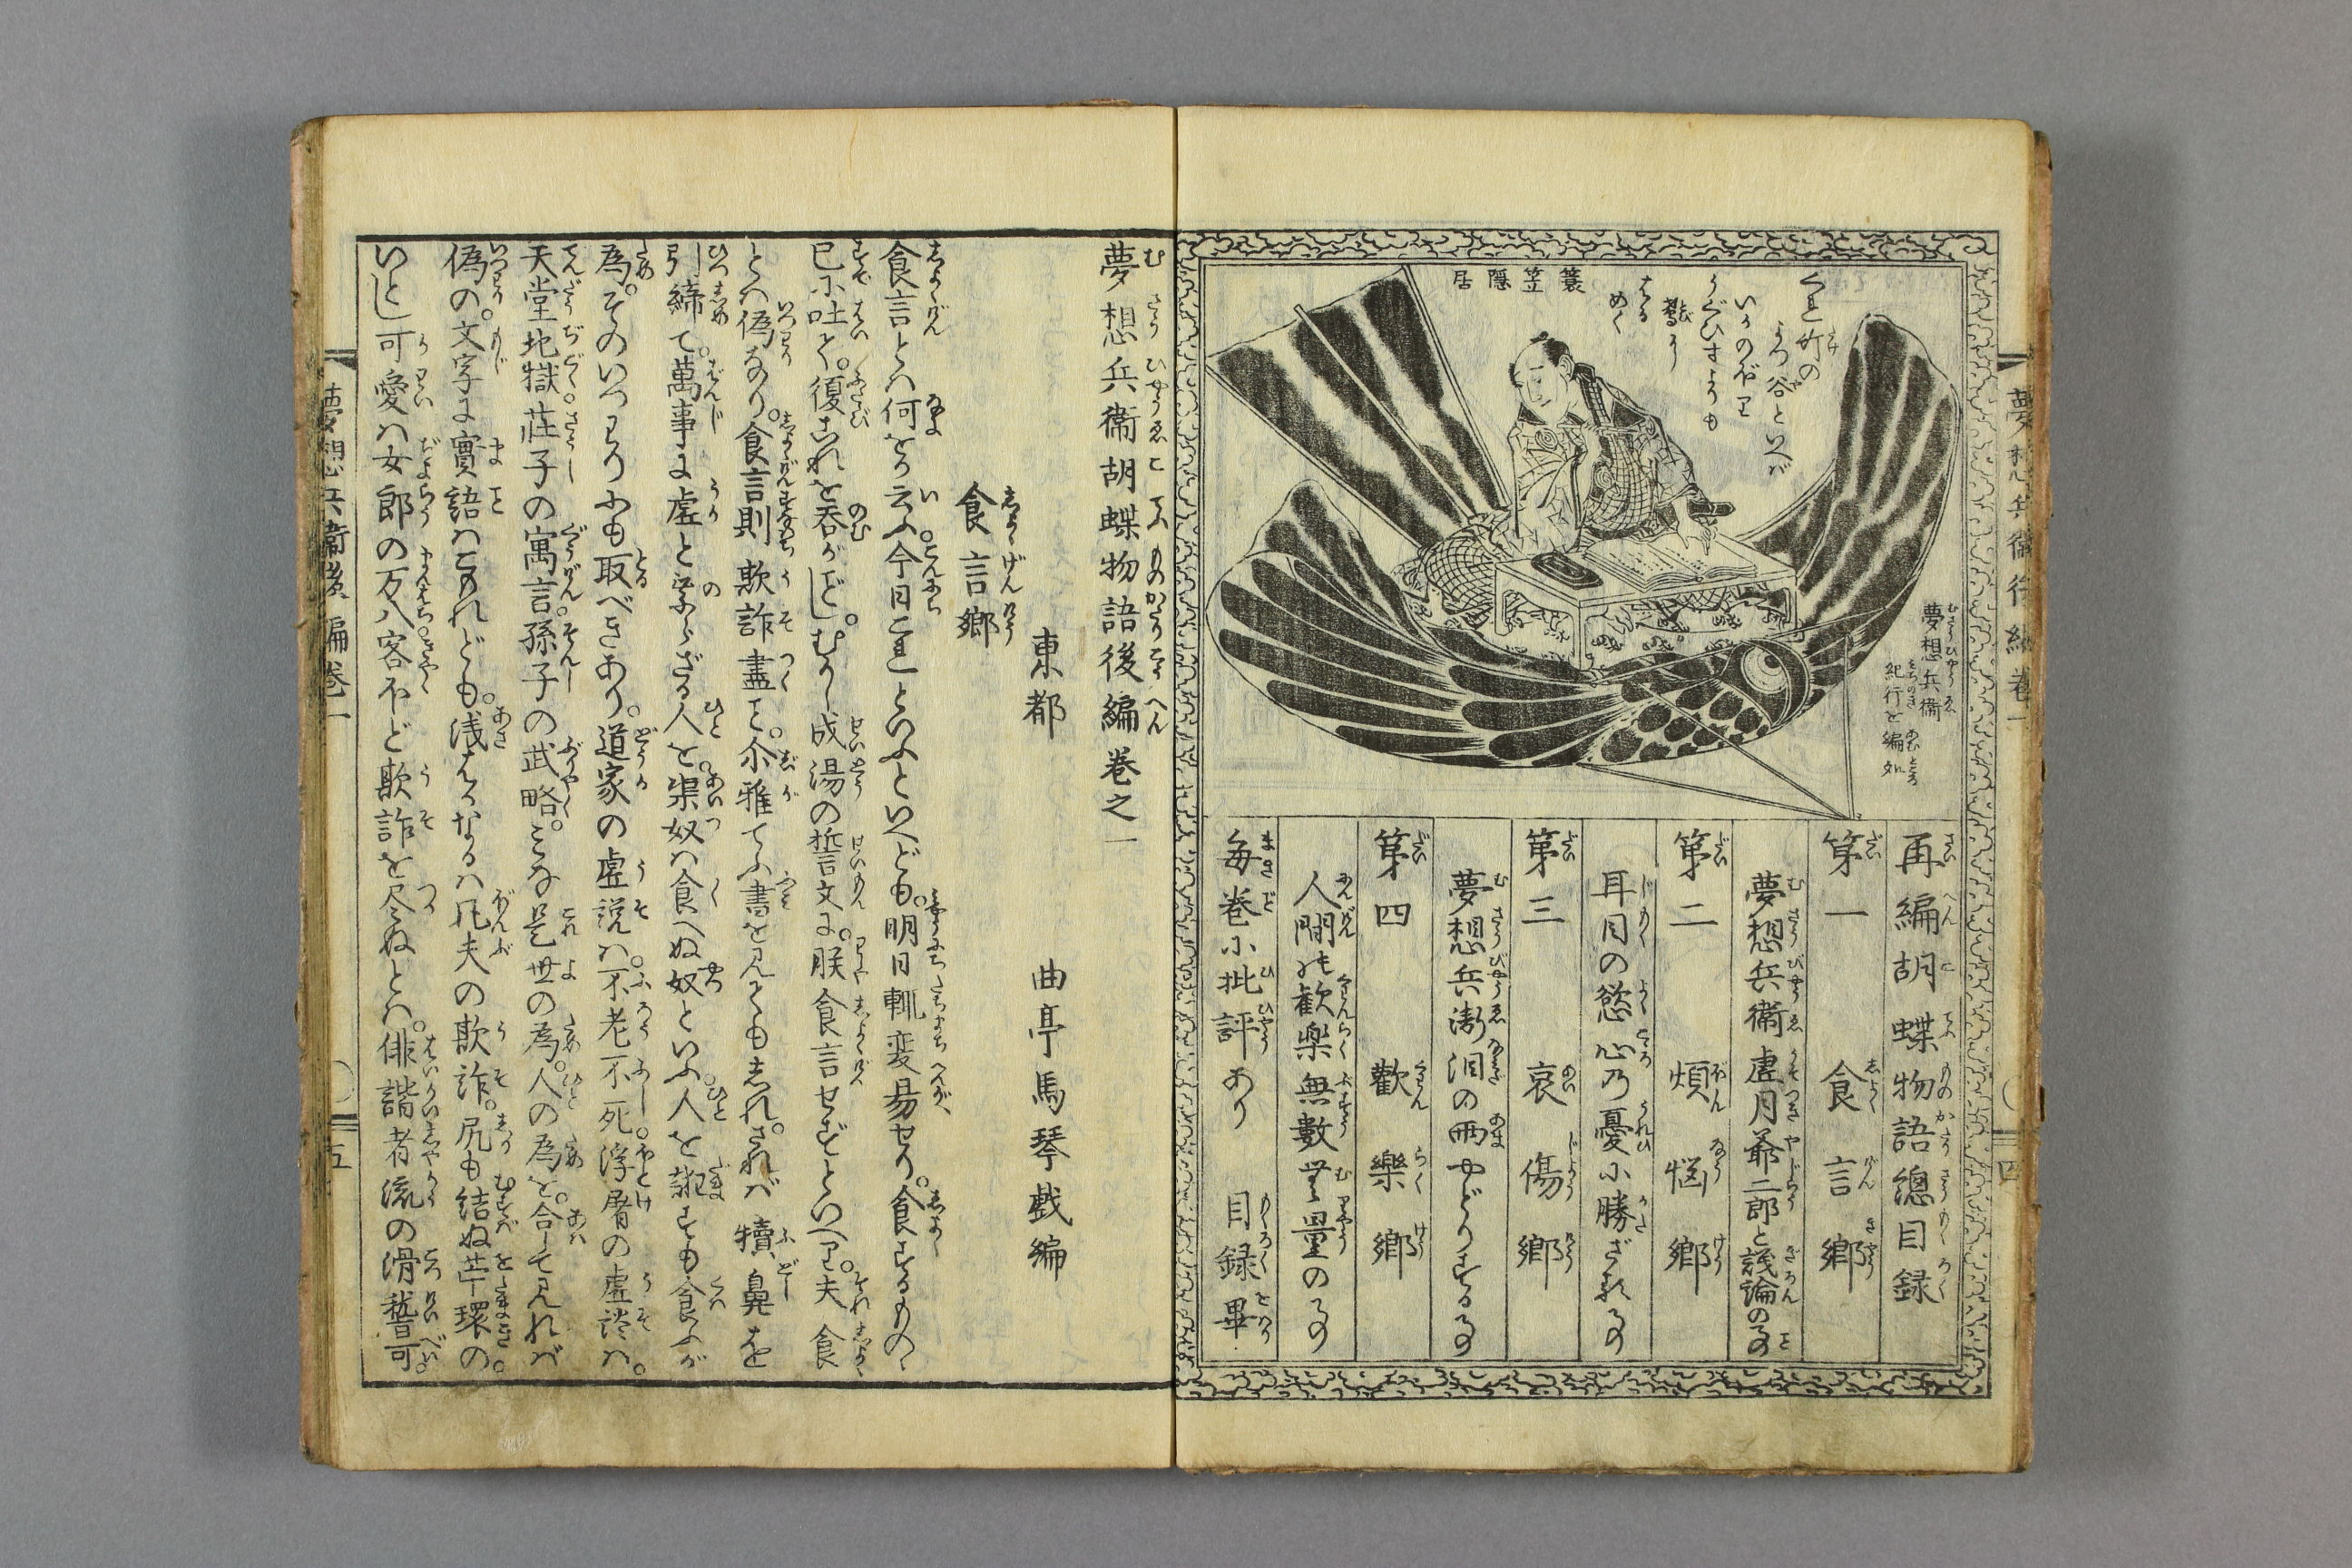 簑笠隠居
くれ竹の
よつ谷といへば
いかのぼり
うぐひすよりも
鳶ぞ
はる
めく
夢想兵衞
紀行を編処
再編胡蝶物語總目録
第一 食言郷
夢想兵衞虚月爺二郎と議論の事
第二 煩悩郷
耳目の慾心乃憂小勝ざる事
第三 哀傷郷
夢想兵衞泪の雨やどりする事
第四 歡樂郷
人間の歡樂無數無量の事
毎巻小批評あり 目録畢
夢想兵衞胡蝶物語後編巻之一
東都 曲亭馬琴戯編
食言郷
食言とハ何をか云ふ。今日これといふといへども。明日輒変易せり。食するものゝ
已に吐て。復これを呑がごとし。むかし成湯の誓文に。朕食言せずといへり。夫食
とハ偽なり。食言則欺詐盡と。尓雅てふ書を見ても志れ。されバ犢鼻を
引締て。萬事に虚と学ざる人を。渠奴ハ食へぬ奴といふ。人を謝するも食ふが
為。そのいつわりにも取べきあり。道家の虚説ハ。不老不死浮屠の虚談ハ。
天堂地獄。莊子の寓言。孫子の武略。みな是世の為。人の為を。合して見れバ
偽の。文字に實語ハこもれども。浅はかなるハ凡夫の欺詐。尻も結ぬ苧環の
いとし可愛ハ女郎の万八客ほど欺詐を尽ぬとハ。俳諧者流の滑稽可。
夢想兵衞後編巻一
五